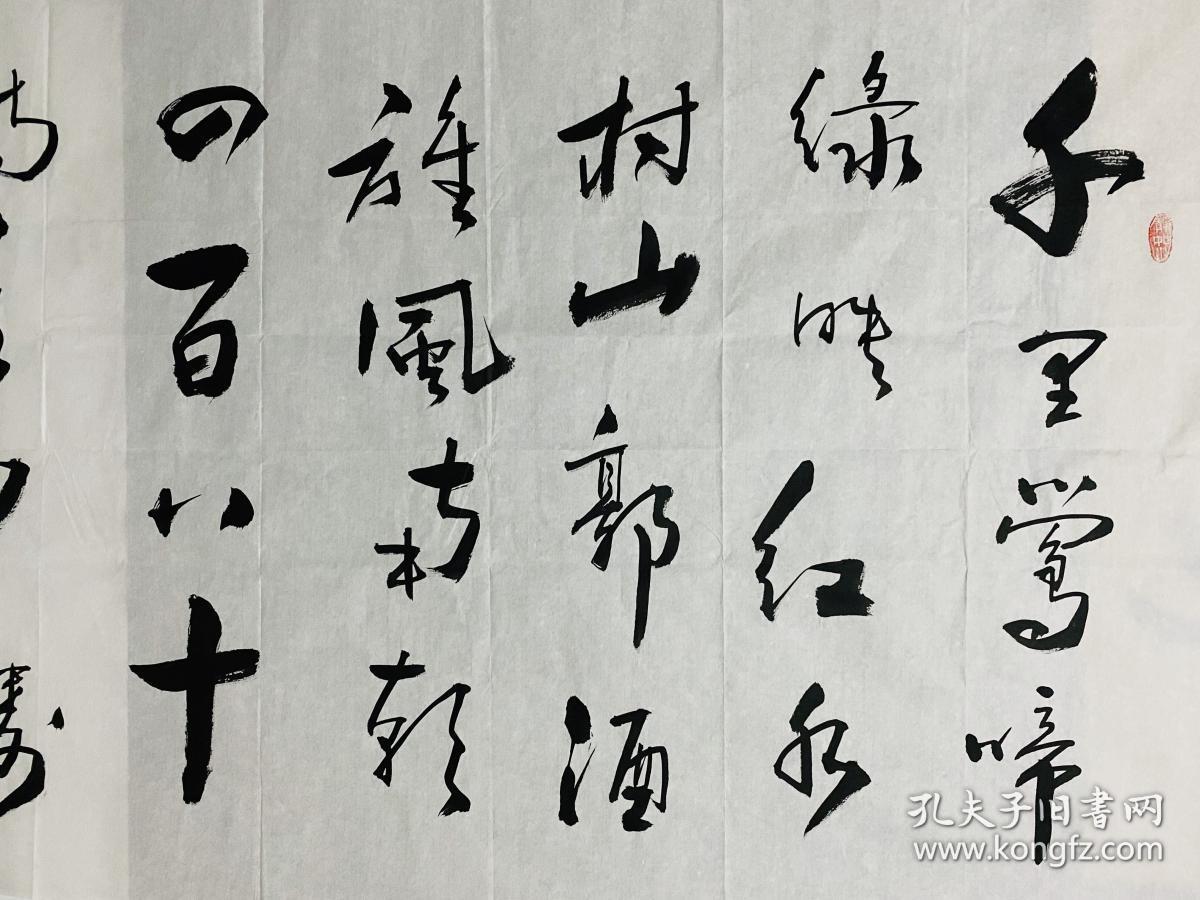 千里鶯啼
緑映红水
村山郭酒
旗風南朝
四百八十
孔夫子旧書网
www.kongfz.com